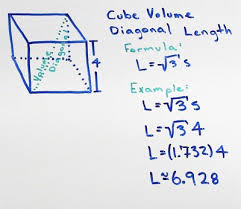 Cube Volume
Diagonal Length
Formula:
L=√3 s
Example:
L=√3 s
L=√3 4
L=(1.732)4
L≈6.928
Volume
Diagonal
4